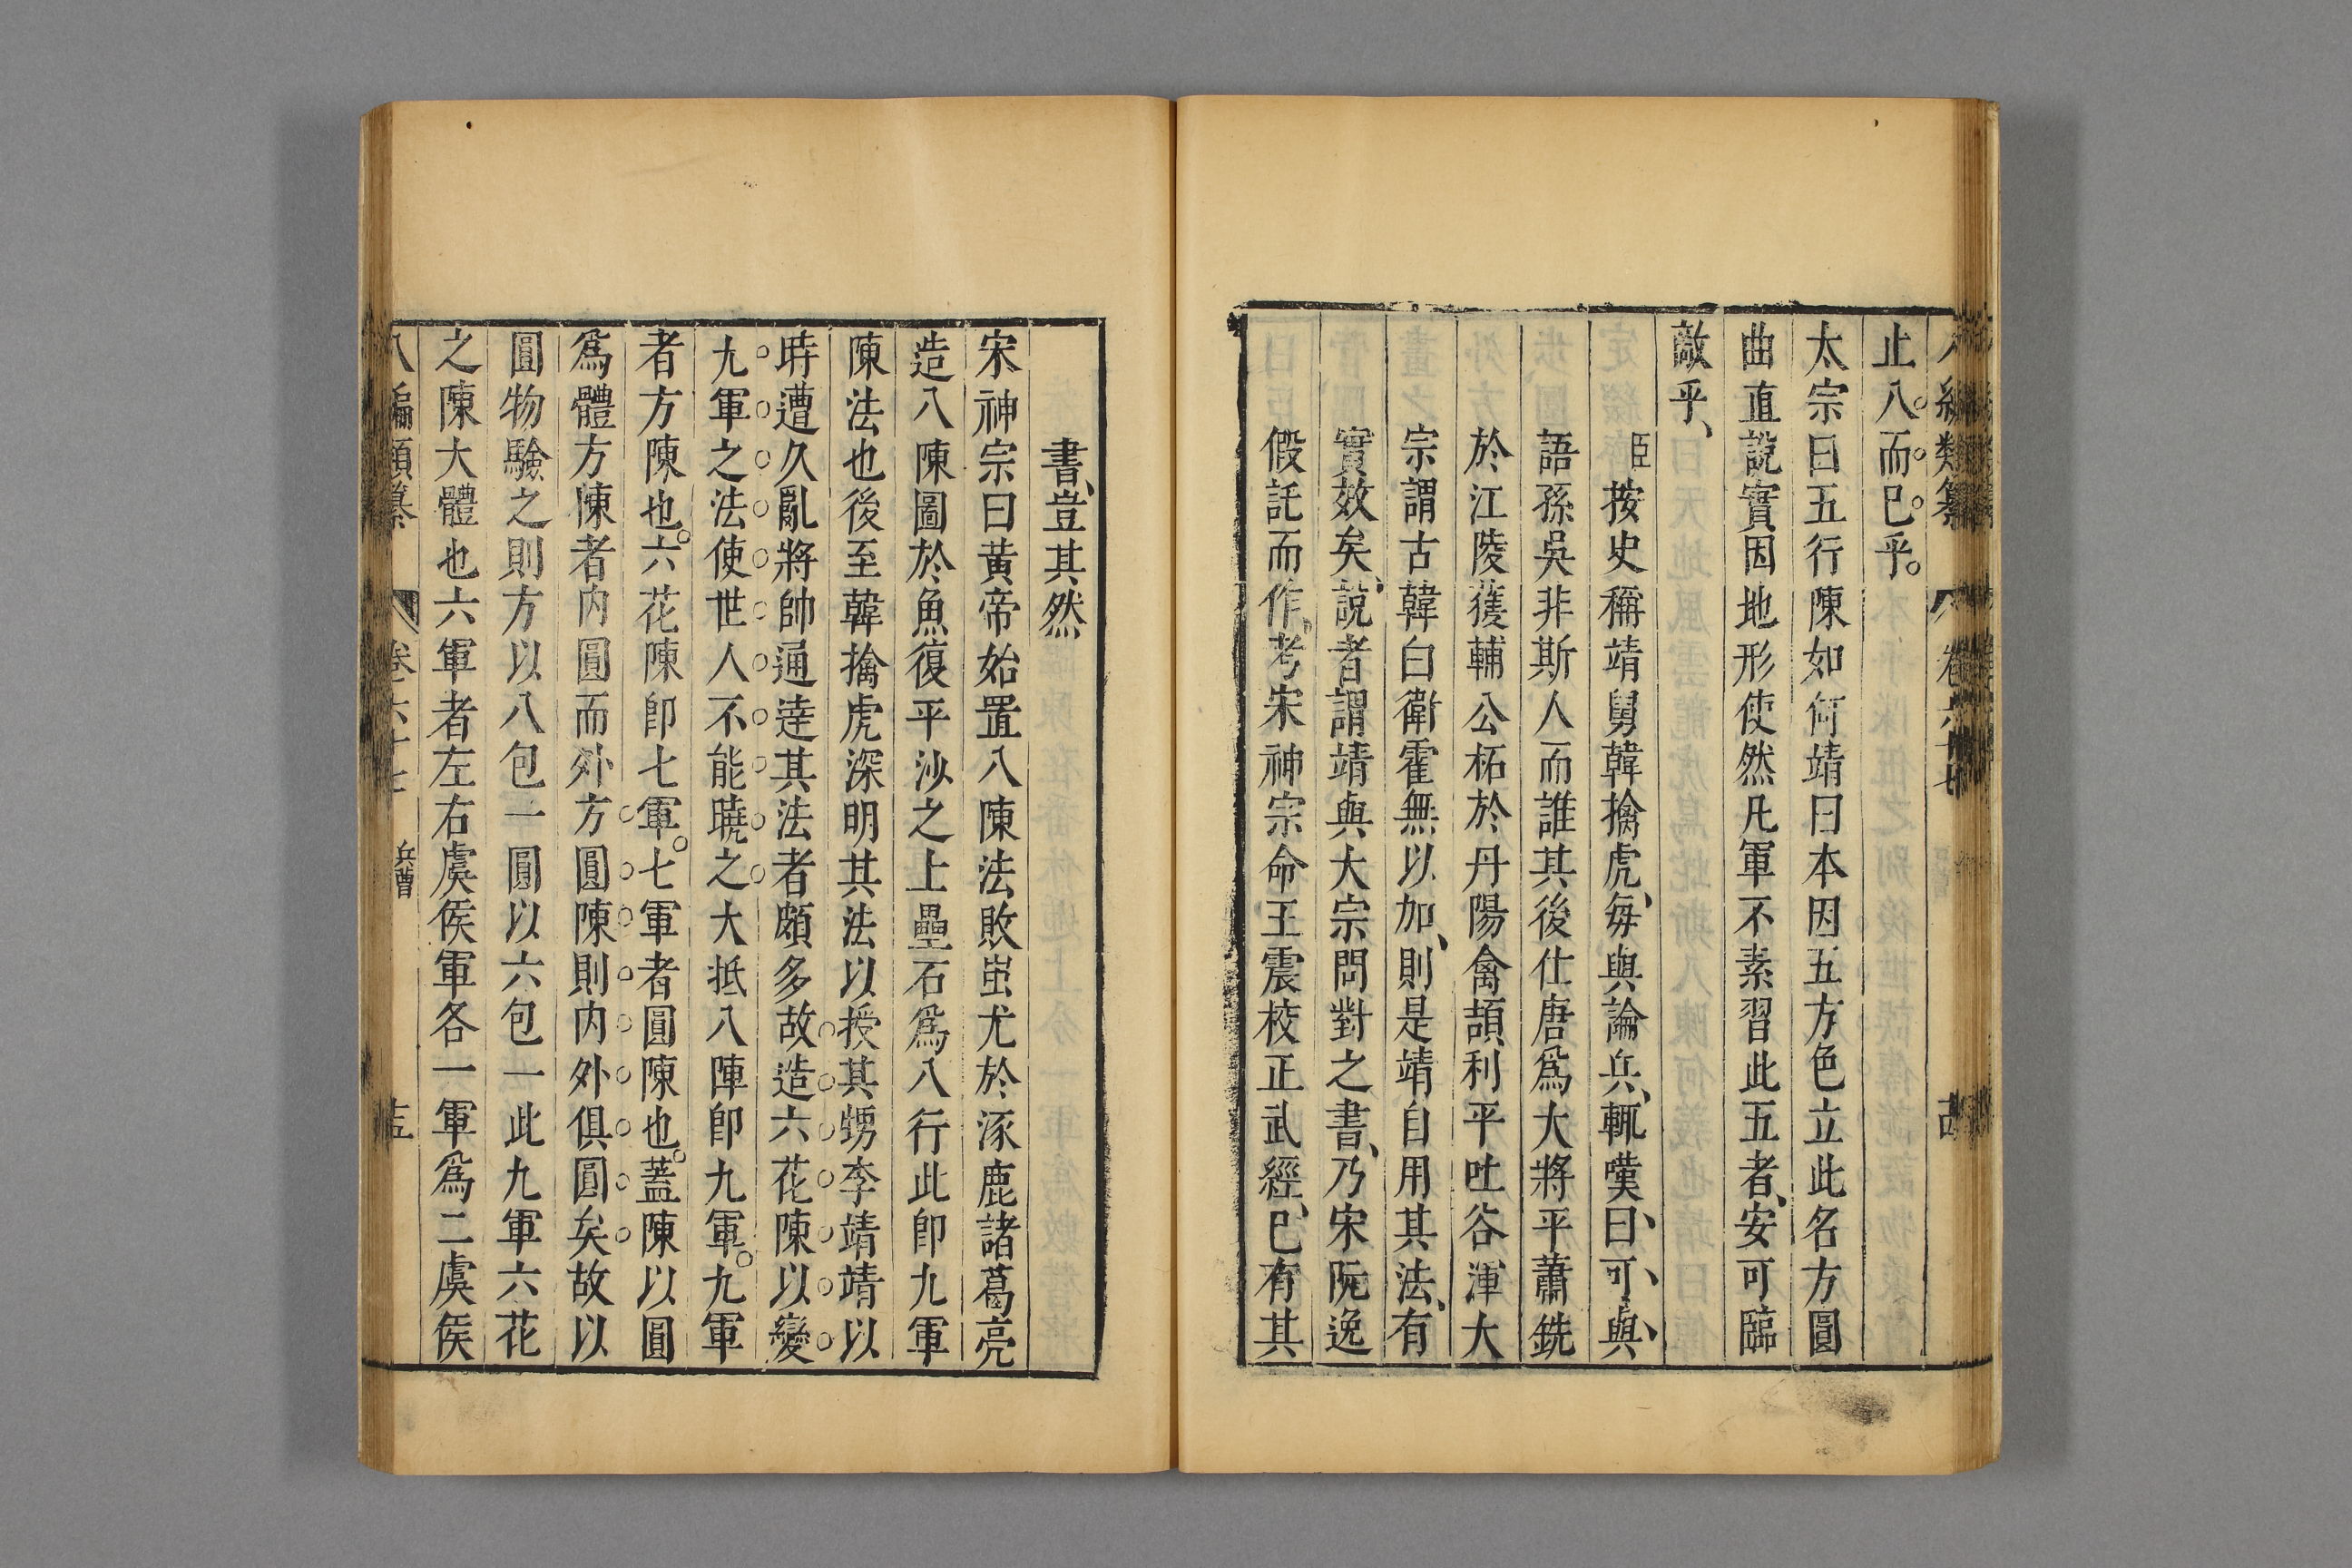 八編類纂 卷六十七 
止八而已乎。
太宗曰五行陳如何靖曰本因五方色立此名方圓
曲直說實因地形使然凡軍不素習此五者、安可臨
敵乎、
臣按史稱靖舅韓擒虎、每與論兵、輒嘆曰、可、與、
語孫吳非斯人而誰其後仕唐爲大將平蕭銑
於江陵獲輔公柘於丹陽禽頡利平吐谷渾大
宗謂古韓白衛霍無以加、則是靖自用其法、有
實效矣、說者謂靖與大宗問對之書、乃宋阮逸
假託而作、考宋神宗命王震校正武經、已有其
書、豈其然
宋神宗曰黃帝始置八陳法敗蚩尤於涿鹿諸葛亮
造八陳圖於魚復平沙之上壘石爲八行此卽九軍
陳法也後至韓擒虎深明其法以授其甥李靖靖以
時遭久亂將帥通達其法者頗多故造六花陳以變
九軍之法使世人不能曉之大抵八陣卽九軍。九軍
者方陳也。六花陳卽七軍。七軍者圓陳也。蓋陳以圓
爲體方陳者内圓而外方圓陳則内外俱圓矣故以
圓物驗之則方以八包一圓以六包一此九軍六花
之陳大體也六軍者左右虞侯軍各一軍爲二虞侯
八編類纂 卷六十七 兵曹 十五